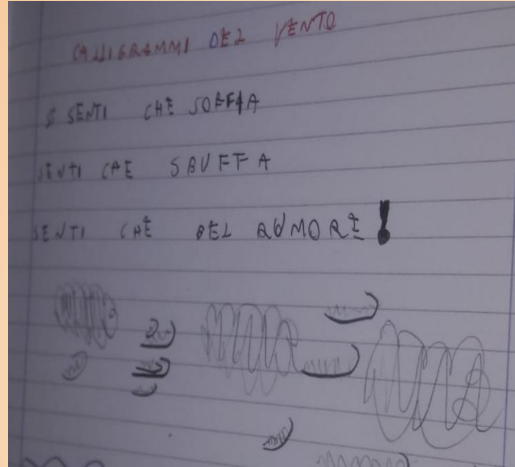 CALLIGRAMMI DEL VENTO
S SENTI CHE SOFFIA
SENTI CHE SBUFFA
SENTI CHE BEL RUMORE!